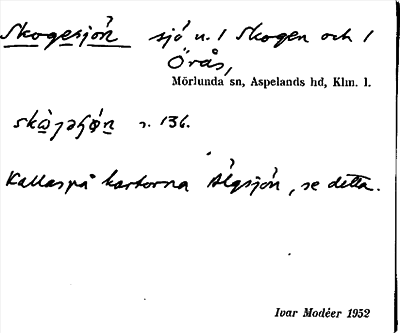 Skogesjön sjö u. 1 Skogen och 1
Örås,
Mörlunda sn, Aspelands hd, Klm. l.
s. 136.
Kallas på kartorna Älgsjön, se detta.
Ivar Modéer 1952